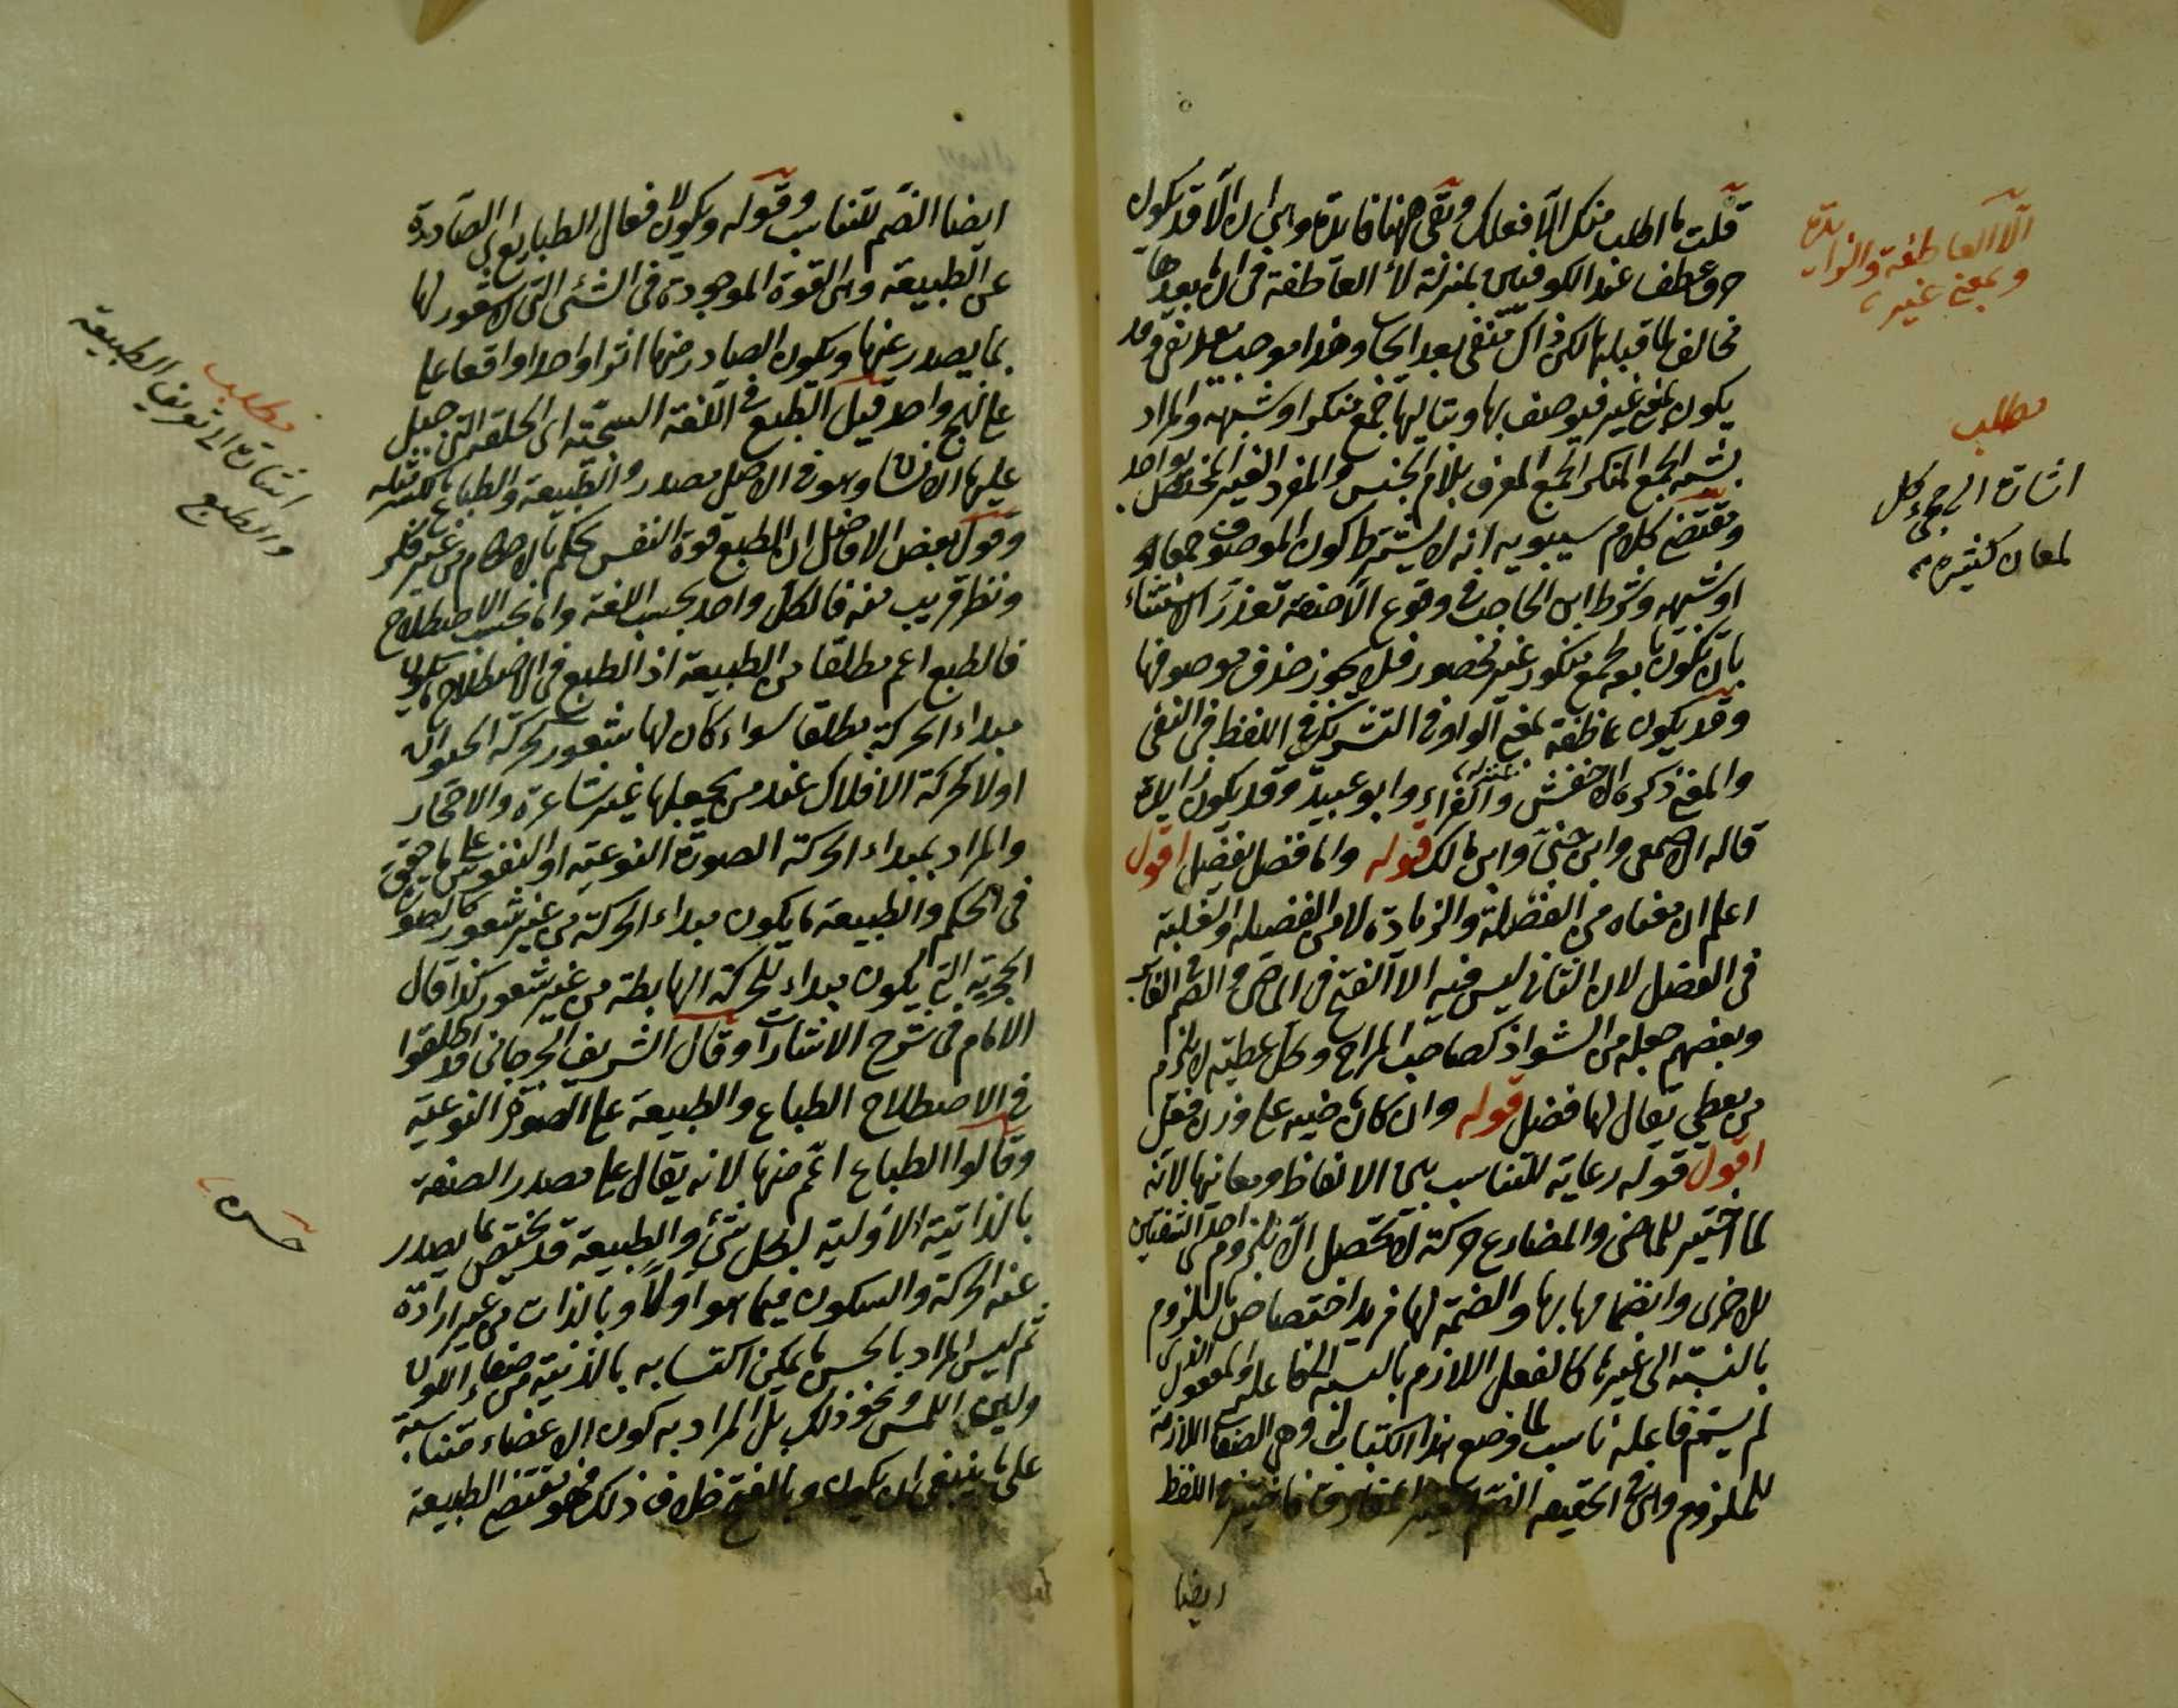 قلت ما اطلب منك الا فعلك وبقى ههنا فائدة وهي ان الا قد يكون
حرف عطف عند الكوفيين بمنزلة لا العاطفة في ان ما بعدها
مخالف لما قبلها لكن ذاك منفى بعد ايجاب وهذا موجب بعد نفى وقد
يكون بمعنى غير فيوصف بها وبتاليها جمع منكر او شبهه والمراد
بشبه الجمع المنكر الجمع المعرف بلام الجنس والمفرد الغير المختص بواحد
ومقتضى كلام سيبويه انه لا يشترط كون الموصوف جمعا او
او شبهه وشرط ابن الحاجب في وقوع الا صفة تعذر الاستثناء
بان تكون تابعة لجمع منكور غير محصور فلا يجوز حذف موصوفها
وقد يكون عاطفة بمعنى الواو في التشريك في اللفظ في النفى
والمعنى ذكره الاخفش والفراء وابو عبيدة وقد يكون زايدة
قاله الاصمعى وابن جنى وابن مالك قوله واما فضل يفضل اقول
اعلم ان معناه من الفضلة والزيادة لا من الفضيلة والغلبة
في الفضل لان الثاني ليس فيه الا الفتح في الماضى والضم في الغابر
وبعضهم جعله من الشواذ كصاحب المراح وكل عطية لا يلزم
من يعطى يقال لها فضل قوله وان كان ماضيه على وزن فعل
اقول قوله رعاية للتناسب بين الالفاظ ومعانيها لانه
لما اختير للماضى والمضارع حركة لا تحصل الا بلزوم احدى الشفتين
للاخرى وانضمامها بها والضمة لها مزيد اختصاص باللزوم
بالنسبة الى غيرها كالفعل اللازم بالنسبة الى فاعله والمفعول الذى
لم يسم فاعله ناسب لما وضع هذا الكتاب له وهى الصفات اللازمة
للملزوم وان في الحقيقة الضم اللفظ
ايضا
الا العاطفة والزايدة
وبمعنى غير
مطلب
اشارة الى مجيء كل
لمعان كثيرة
ايضا الضم للتناسب وقوله ويكون لافعال الطبايع اى الصادرة
عن الطبيعة وهى القوة الموجودة في الشئ التى لا شعور لها
بما يصدر عنها ويكون الصادر منها اثرا واحدا واقعا على
على نهج واحد قيل الطبع في اللغة السجية اى الخلقة التى جبل
عليها الانسان وهو في الاصل مصدر والطبيعة والطباع بالكسر مثله
وقول بعض الافاضل ان الطبع قوة النفس تحكم بالاحكام من غير فكر
ونظر قريب منه فالكل واحد بحسب اللغة واما بحسب الاصطلاح
فالطبع اعم مطلقا من الطبيعة اذ الطبع في الاصطلاح ما يكون
مبداء الحركة مطلقا سواء كان لها شعور كحركة الحيوان
او لا كحركة الافلاك عند من يجعلها غير شاعرة والاحجار
والمراد بمبداء الحركة الصورة النوعية او النفوس على ما حقق
في الحكم والطبيعة ما يكون مبداء الحركة من غير شعور كالصورة
الحجرية التى يكون مبداء للحركة الهابطة من غير شعور كذا قال
الامام في شرح الاشارات وقال الشريف الجرجانى قد اطلقوا
في الاصطلاح الطباع والطبيعة على الصورة النوعية
وقالوا الطباع اعم منها لانه يقال على مصدر الصفة
بالذاتية الاولية لكل شئ والطبيعة قد يختص بما يصدر
عنه الحركة والسكون فيما هو اولا وبالذات من غير ارادة
ثم ليس المراد بالحسن ما يمكن اكتسابه بالزينة من صفاء اللون
ولين اللمس ونحو ذلك بل المراد به كون الاعضاء متناسبة
على ما ينبغى ان يكون وبالقبح خلاف ذلك فهو مقتضى الطبيعة
مطلب
اشارة الى تعريف الطبيعة
والطبع
حسن